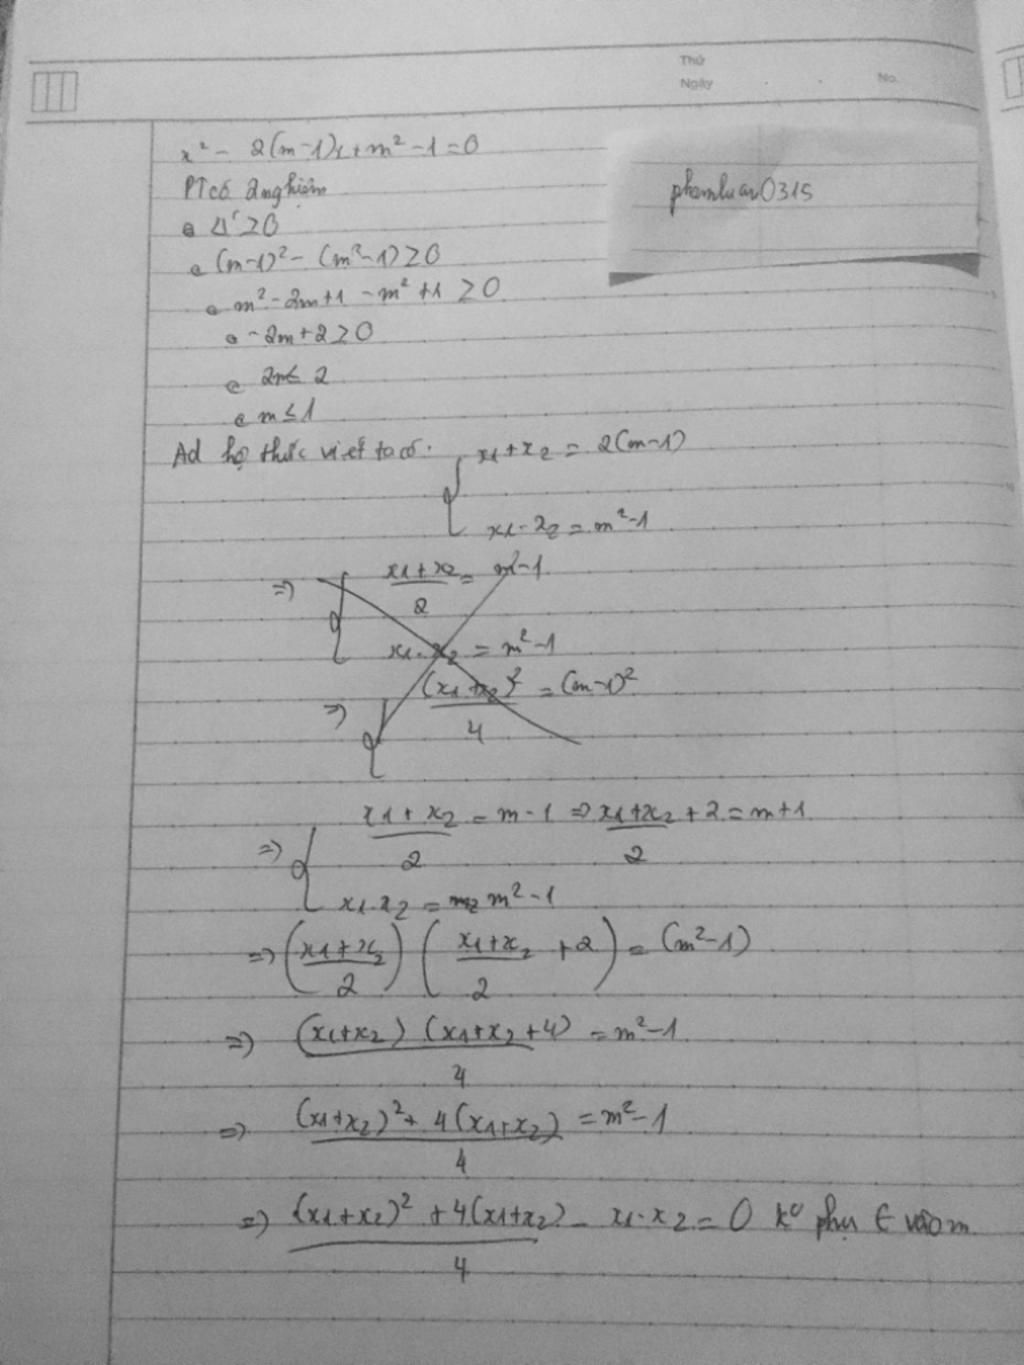 Thứ
Ngày
No.
x² - 2(m-1)x+m² -1=0
phamluan0315
PT có 2 nghiệm
Δ' ≥0
(m-1)² - (m²-1) ≥0
m² - 2m+1 - m² +1 ≥0
-2m+2 ≥0
2m≤ 2
m ≤ 1
Ad hệ thức viét ta có:
{ x1+x2 = 2(m-1)
x1.x2 = m²-1
=> { (x1+x2)/2 = m-1
x1.x2 = m²-1
=> { (x1+x2)²/4 = (m-1)²
=> { (x1+x2)/2 = m-1 => (x1+x2)/2 +2 = m+1
x1.x2 = m²-1
=> ((x1+x2)/2) ((x1+x2)/2 +2) = (m²-1)
=> (x1+x2)(x1+x2+4)/4 = m²-1
=> ((x1+x2)²+ 4(x1+x2))/4 = m²-1
=> ((x1+x2)² +4(x1+x2))/4 - x1.x2 = 0 k° phụ € vào m